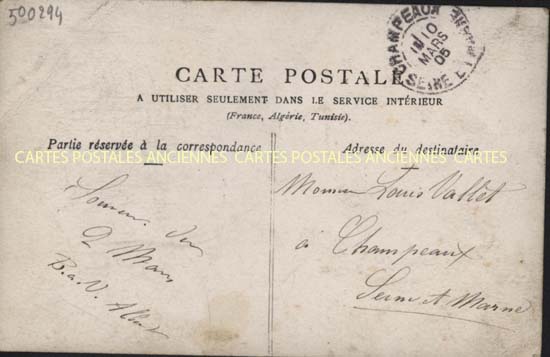 500294
CHAMPEAUX
10
MARS
05
SEINE
CARTE POSTALE
A UTILISER SEULEMENT DANS LE SERVICE INTÉRIEUR
(France, Algérie, Tunisie).
Partie réservée à la correspondance
Adresse du destinataire
CARTES POSTALES ANCIENNES CARTES POSTALES ANCIENNES CARTES
Souvenir du
9 Mars
B. a. V. Albert
Monsieur Louis Vallet
à Champeaux
Seine et Marne